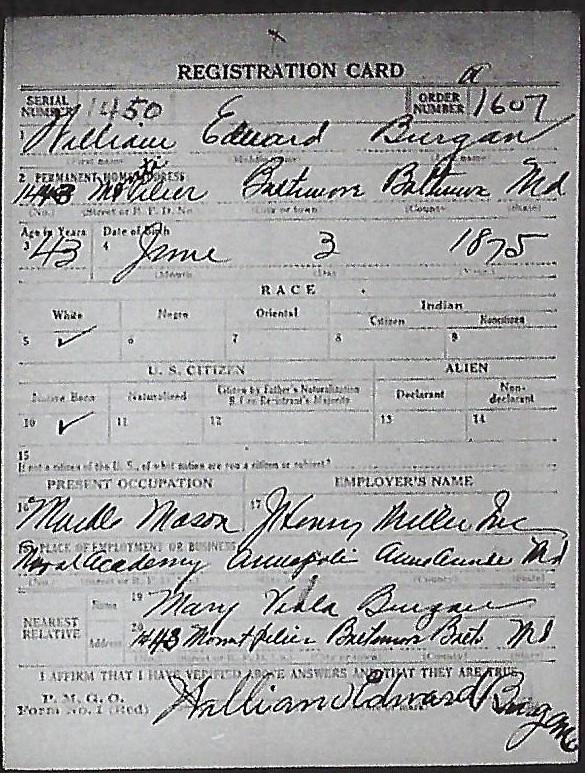 REGISTRATION CARD
SERIAL NUMBER 1450 ORDER NUMBER 1607
1 William Edward Burgan
2 PERMANENT HOME ADDRESS
1443 Baltimore Baltimore Md
(No.) (Street or R. F. D. No.) (City or town) (County) (State)
Age in Years Date of Birth
3 43 4 June 3 1875
(Month) (Day) (Year)
RACE
White Negro Oriental Indian
Citizen Noncitizen
5 ✓ 6 7 8 9
U. S. CITIZEN ALIEN
Native Born Naturalized Citizen by Father's Naturalization Before Registrant's Majority Declarant Non-declarant
10 ✓ 11 12 13 14
15
If not a citizen of the U. S., of what nation are you a citizen or subject?
PRESENT OCCUPATION EMPLOYER'S NAME
16 Mason 17 J Henry Miller Inc
18 PLACE OF EMPLOYMENT OR BUSINESS
Naval Academy Annapolis Md
(Street or R. F. D. No.) (County) (State)
NEAREST RELATIVE
Name 19 Mary Viola Burgan
Address 20 1443 Montpelier Baltimore Balto Md
I AFFIRM THAT I HAVE VERIFIED ABOVE ANSWERS AND THAT THEY ARE TRUE
P. M. G. O.
Form No. 1 (Red) William Edward Burgan